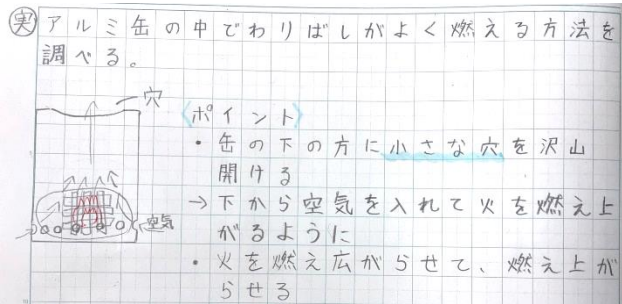 実 アルミ缶の中でわりばしがよく燃える方法を
調べる。
穴
〈ポイント〉
・缶の下の方に小さな穴を沢山
開ける
→下から空気を入れて火を燃え上
がるように
空気
・火を燃え広がらせて、燃え上が
らせる